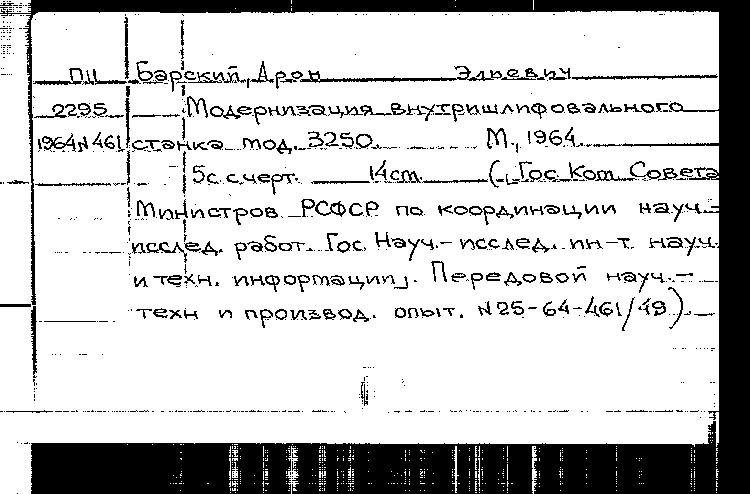 ПII Барский, Арон Элиевич
2295 Модернизация внутришлифовального
1964 N 461 станка мод. 3250. М., 1964
5с. с черт. 14 cm. (Гос Ком Совета
Министров РСФСР по координации науч.-
исслед. работ. Гос Науч.-исслед. ин-т науч.
и техн. информации]. Передовой науч.-
техн и производ. опыт. N 25-64-461/49).